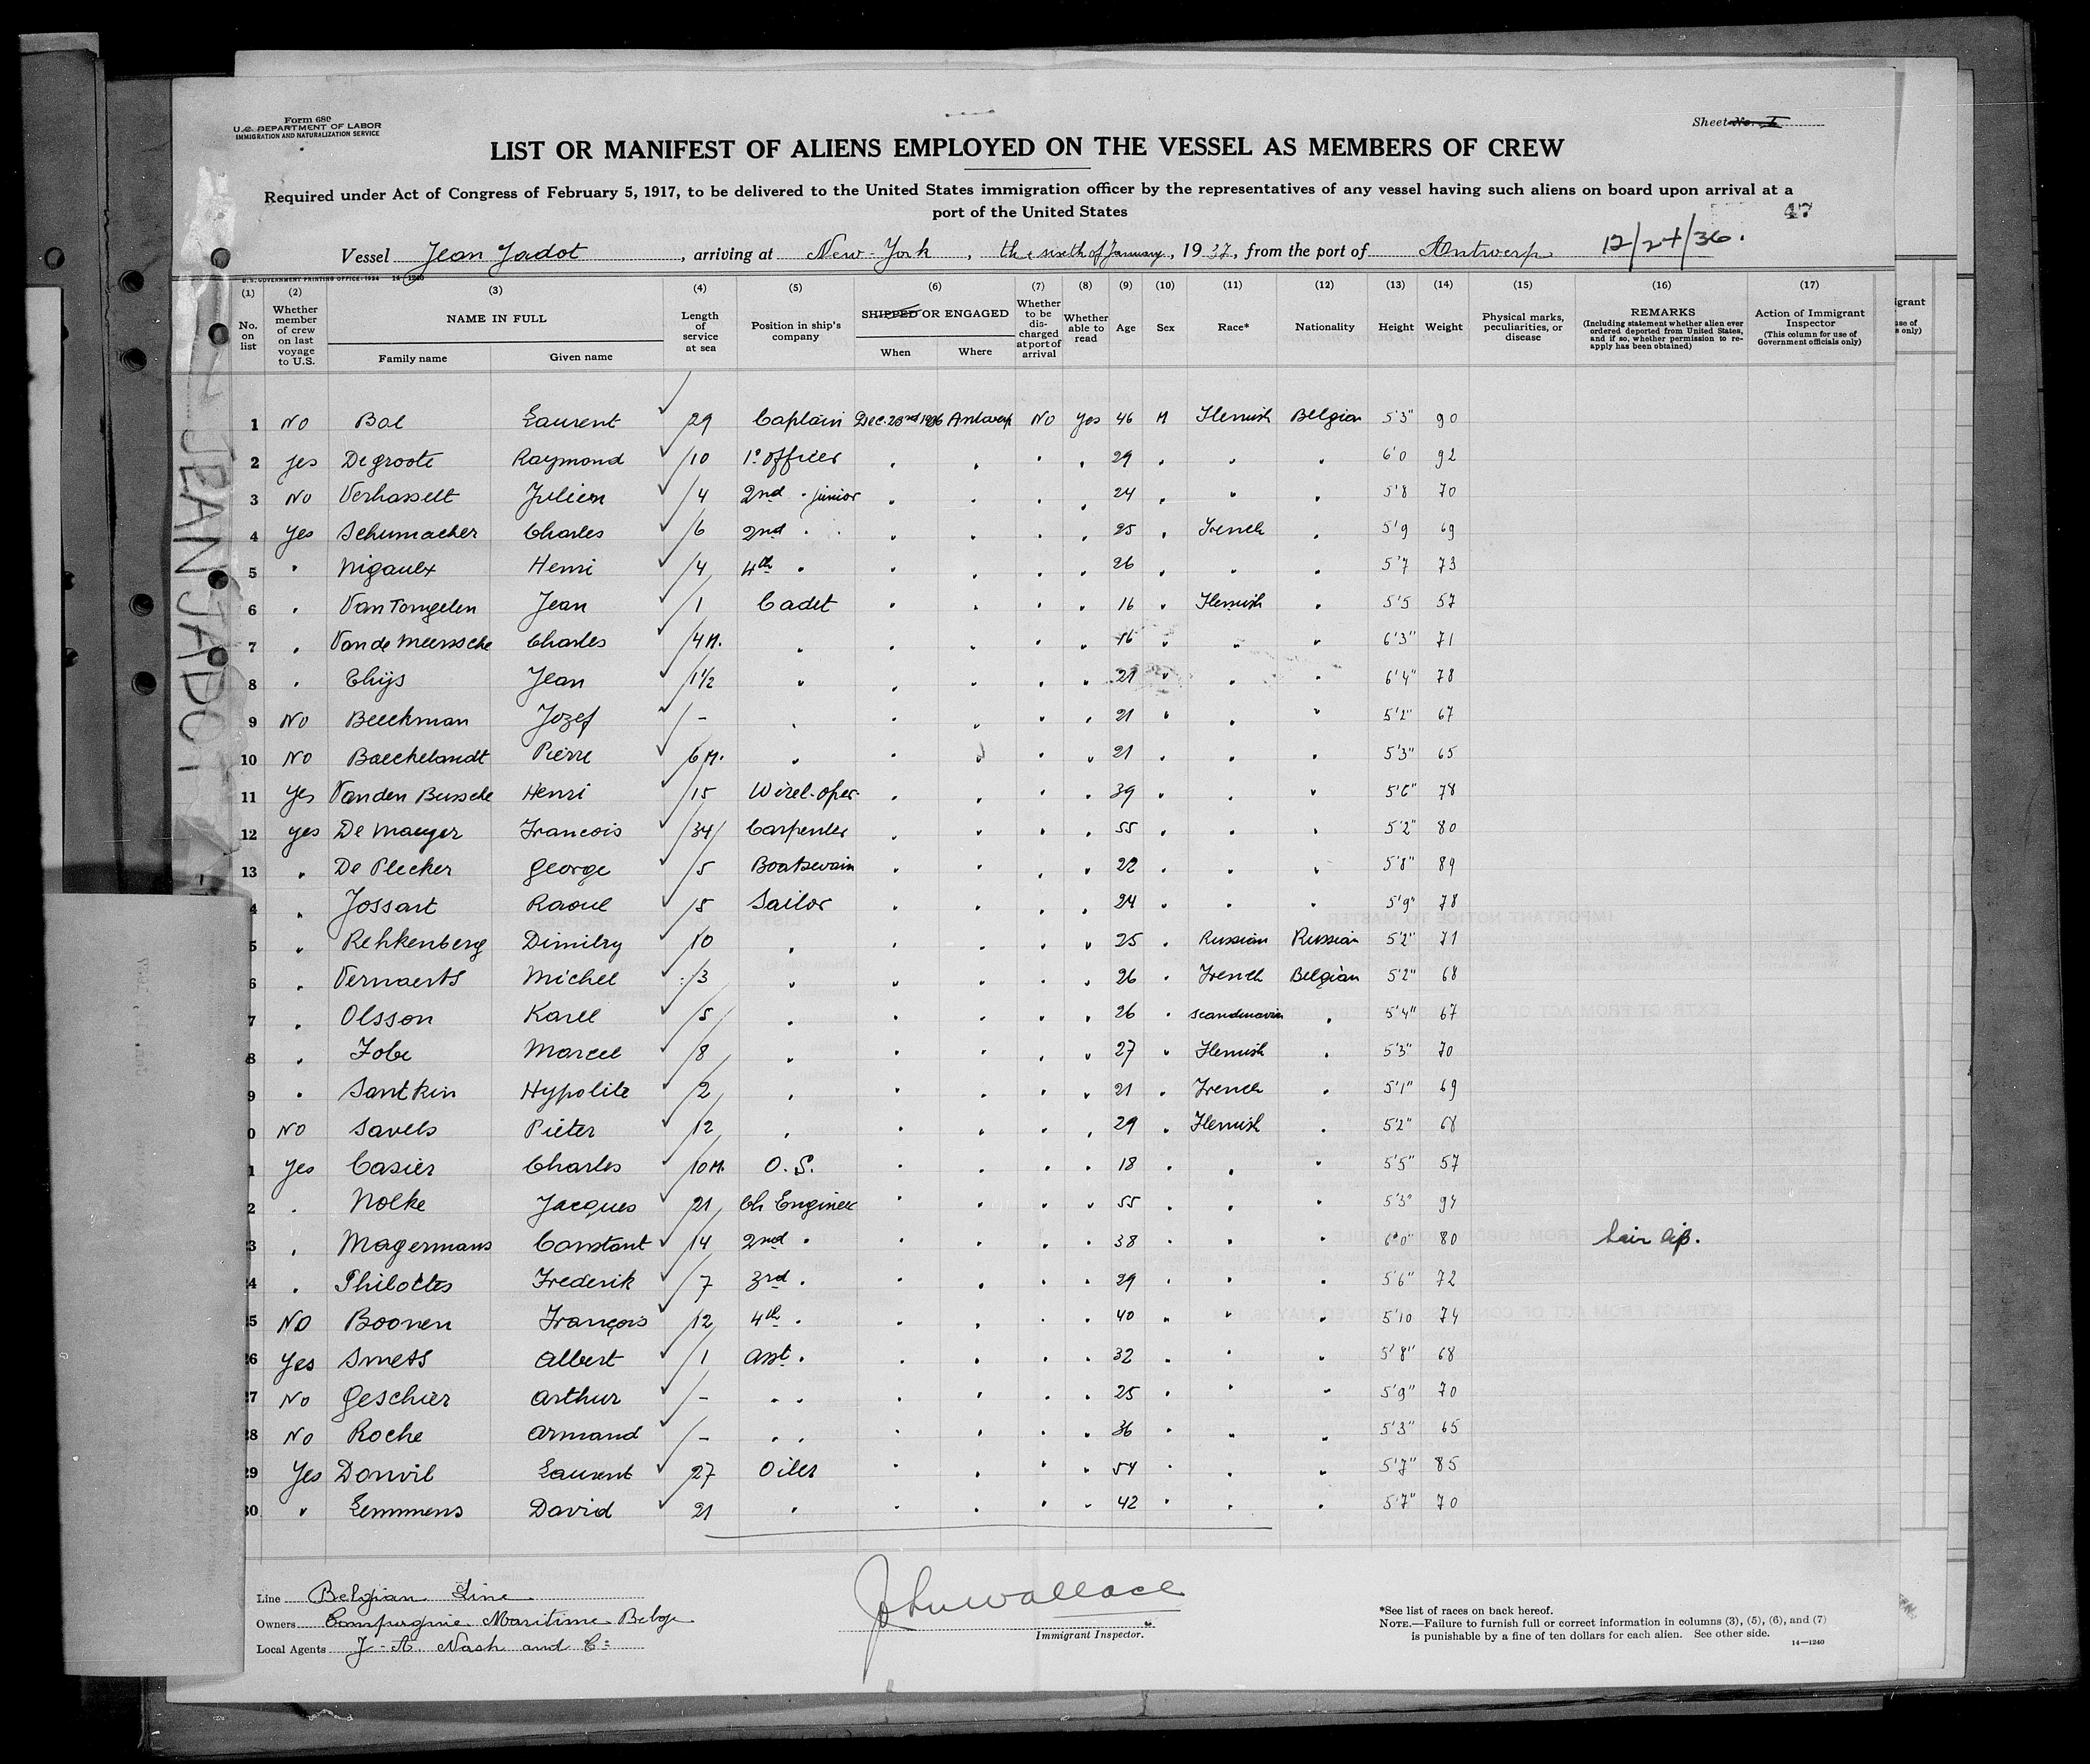 Form 680
U.S. DEPARTMENT OF LABOR
IMMIGRATION AND NATURALIZATION SERVICE
Sheet No. 1
LIST OR MANIFEST OF ALIENS EMPLOYED ON THE VESSEL AS MEMBERS OF CREW
Required under Act of Congress of February 5, 1917, to be delivered to the United States immigration officer by the representatives of any vessel having such aliens on board upon arrival at a
port of the United States
47
12/24/36.
Vessel Jean Jadot, arriving at New-York, the sixth of January, 1937, from the port of Antwerp
U.S. GOVERNMENT PRINTING OFFICE: 1934 14—1240
(1) (2) (3) (4) (5) (6) (7) (8) (9) (10) (11) (12) (13) (14) (15) (16) (17)
No. on list Whether member of crew on last voyage to U.S. NAME IN FULL Family name Given name Length of service at sea Position in ship's company SHIPPED OR ENGAGED When Where Whether to be discharged at port of arrival Whether able to read Age Sex Race* Nationality Height Weight Physical marks, peculiarities, or disease REMARKS (Including statement whether alien ever ordered deported from United States, and if so, whether permission to reapply has been obtained) Action of Immigrant Inspector (This column for use of Government officials only)
JEAN JADOT
1 No Bal Laurent 29 Captain Dec. 23nd 1936 Antwerp No Yes 46 M Flemish Belgian 5'3" 90
2 yes Degroote Raymond 10 1° officer 29 6'0 92
3 No Verhasselt Julien 4 2nd " junior 24 5'8 70
4 Yes Schumacher Charles 6 2nd " " 25 French 5'9 69
5 " Nigaulx Henri 4 4th " 26 5'7 73
6 " Van Tongelen Jean 1 Cadet 16 Flemish 5'5 57
7 " Van de Meerssche Charles 4 M. " 16 6'3" 71
8 " Thijs Jean 1 1/2 " 21 6'4" 78
9 No Beeckman Jozef - " 21 5'2" 67
10 No Baeckelandt Pierre 6 M. " 21 5'3" 65
11 Yes Vanden Bussche Henri 15 Wirel-oper 39 5'6" 78
12 yes De Maeyer Francois 34 Carpenter 55 5'2" 80
13 " De Plecker George 5 Boatswain 22 5'8" 89
4 " Jossart Raoul 5 Sailor 24 5'9" 78
5 " Rehkenberg Dimitry 10 " 25 Russian Russian 5'2" 71
6 " Vernaerts Michel 3 " 26 French Belgian 5'2" 68
7 " Olsson Karel 5 " 26 Scandinavian " 5'4" 67
8 " Fobe Marcel 8 " 27 Flemish " 5'3" 70
9 " Santkin Hypolite 2 " 21 French " 5'1" 69
0 No Savels Pieter 12 " 29 Flemish " 5'2" 68
1 Yes Casier Charles 10 M. O. S. 18 5'5" 57
2 " Nolke Jacques 21 Ch Engineer 55 5'3" 94
3 " Magermans Constant 14 2nd " 38 6'0" 80 hair lip.
4 " Philoctes Frederik 7 3rd " 29 5'6" 72
5 No Boonen François 12 4th " 40 5'10 74
26 Yes Smets Albert 1 asst " 32 5'8" 68
27 No Geschier Arthur - " " 25 5'9" 70
28 No Roche Armand - " " 36 5'3" 65
29 Yes Donvil Laurent 27 Oiler 54 5'7" 85
30 " Lemmens David 21 " 42 5'7" 70
Line Belgian Line
Owners Compagnie Maritime Belge
Local Agents J. A. Nash and C°
John Wallace
Immigrant Inspector.
*See list of races on back hereof.
NOTE.—Failure to furnish full or correct information in columns (3), (5), (6), and (7)
is punishable by a fine of ten dollars for each alien. See other side.
14—1240